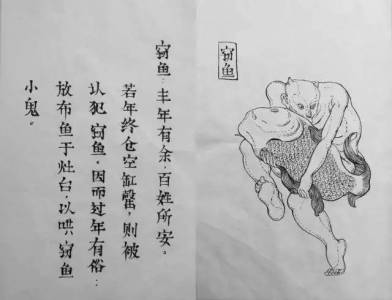 窃鱼：丰年有余，百姓所安。
若年终仓空缸罄，则被
认犯窃鱼，因而过年有俗：
放布鱼于灶台，以哄窃鱼
小鬼。
窃鱼